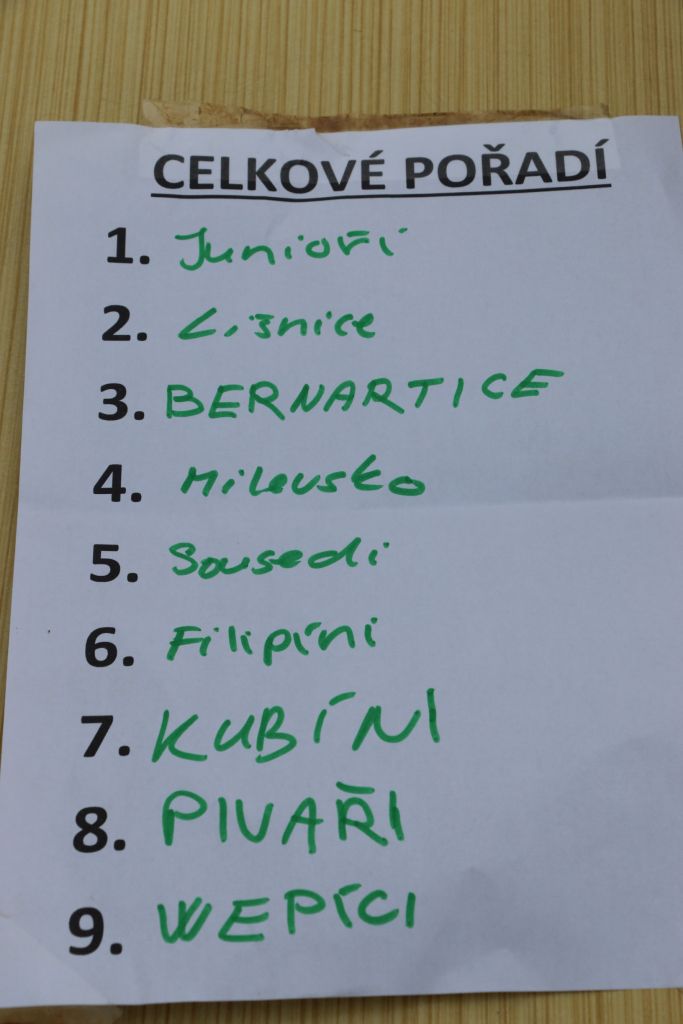 CELKOVÉ POŘADÍ
1. Junioři
2. Líšnice
3. BERNARTICE
4. Milevsko
5. Sousedi
6. Filipíni
7. KUBÍNI
8. PIVAŘI
9. WEPÍCI